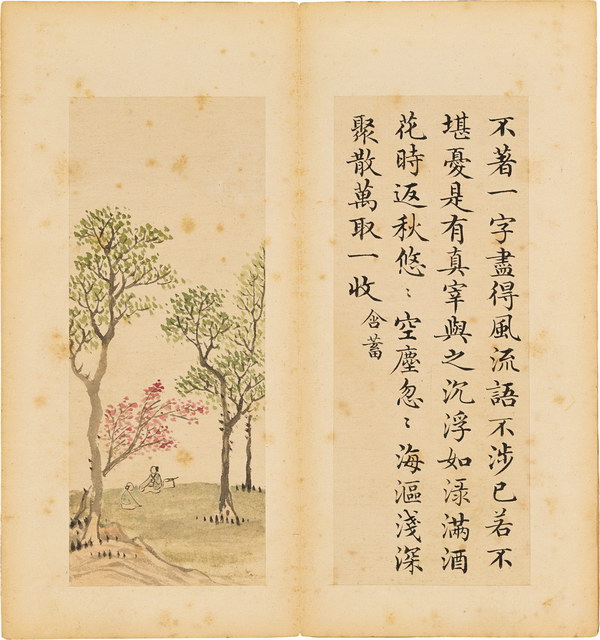 不著一字盡得風流語不涉已若不
堪憂是有真宰與之沉浮如淥滿酒
花時返秋悠〻空塵忽〻海漚淺深
聚散萬取一收 含蓄